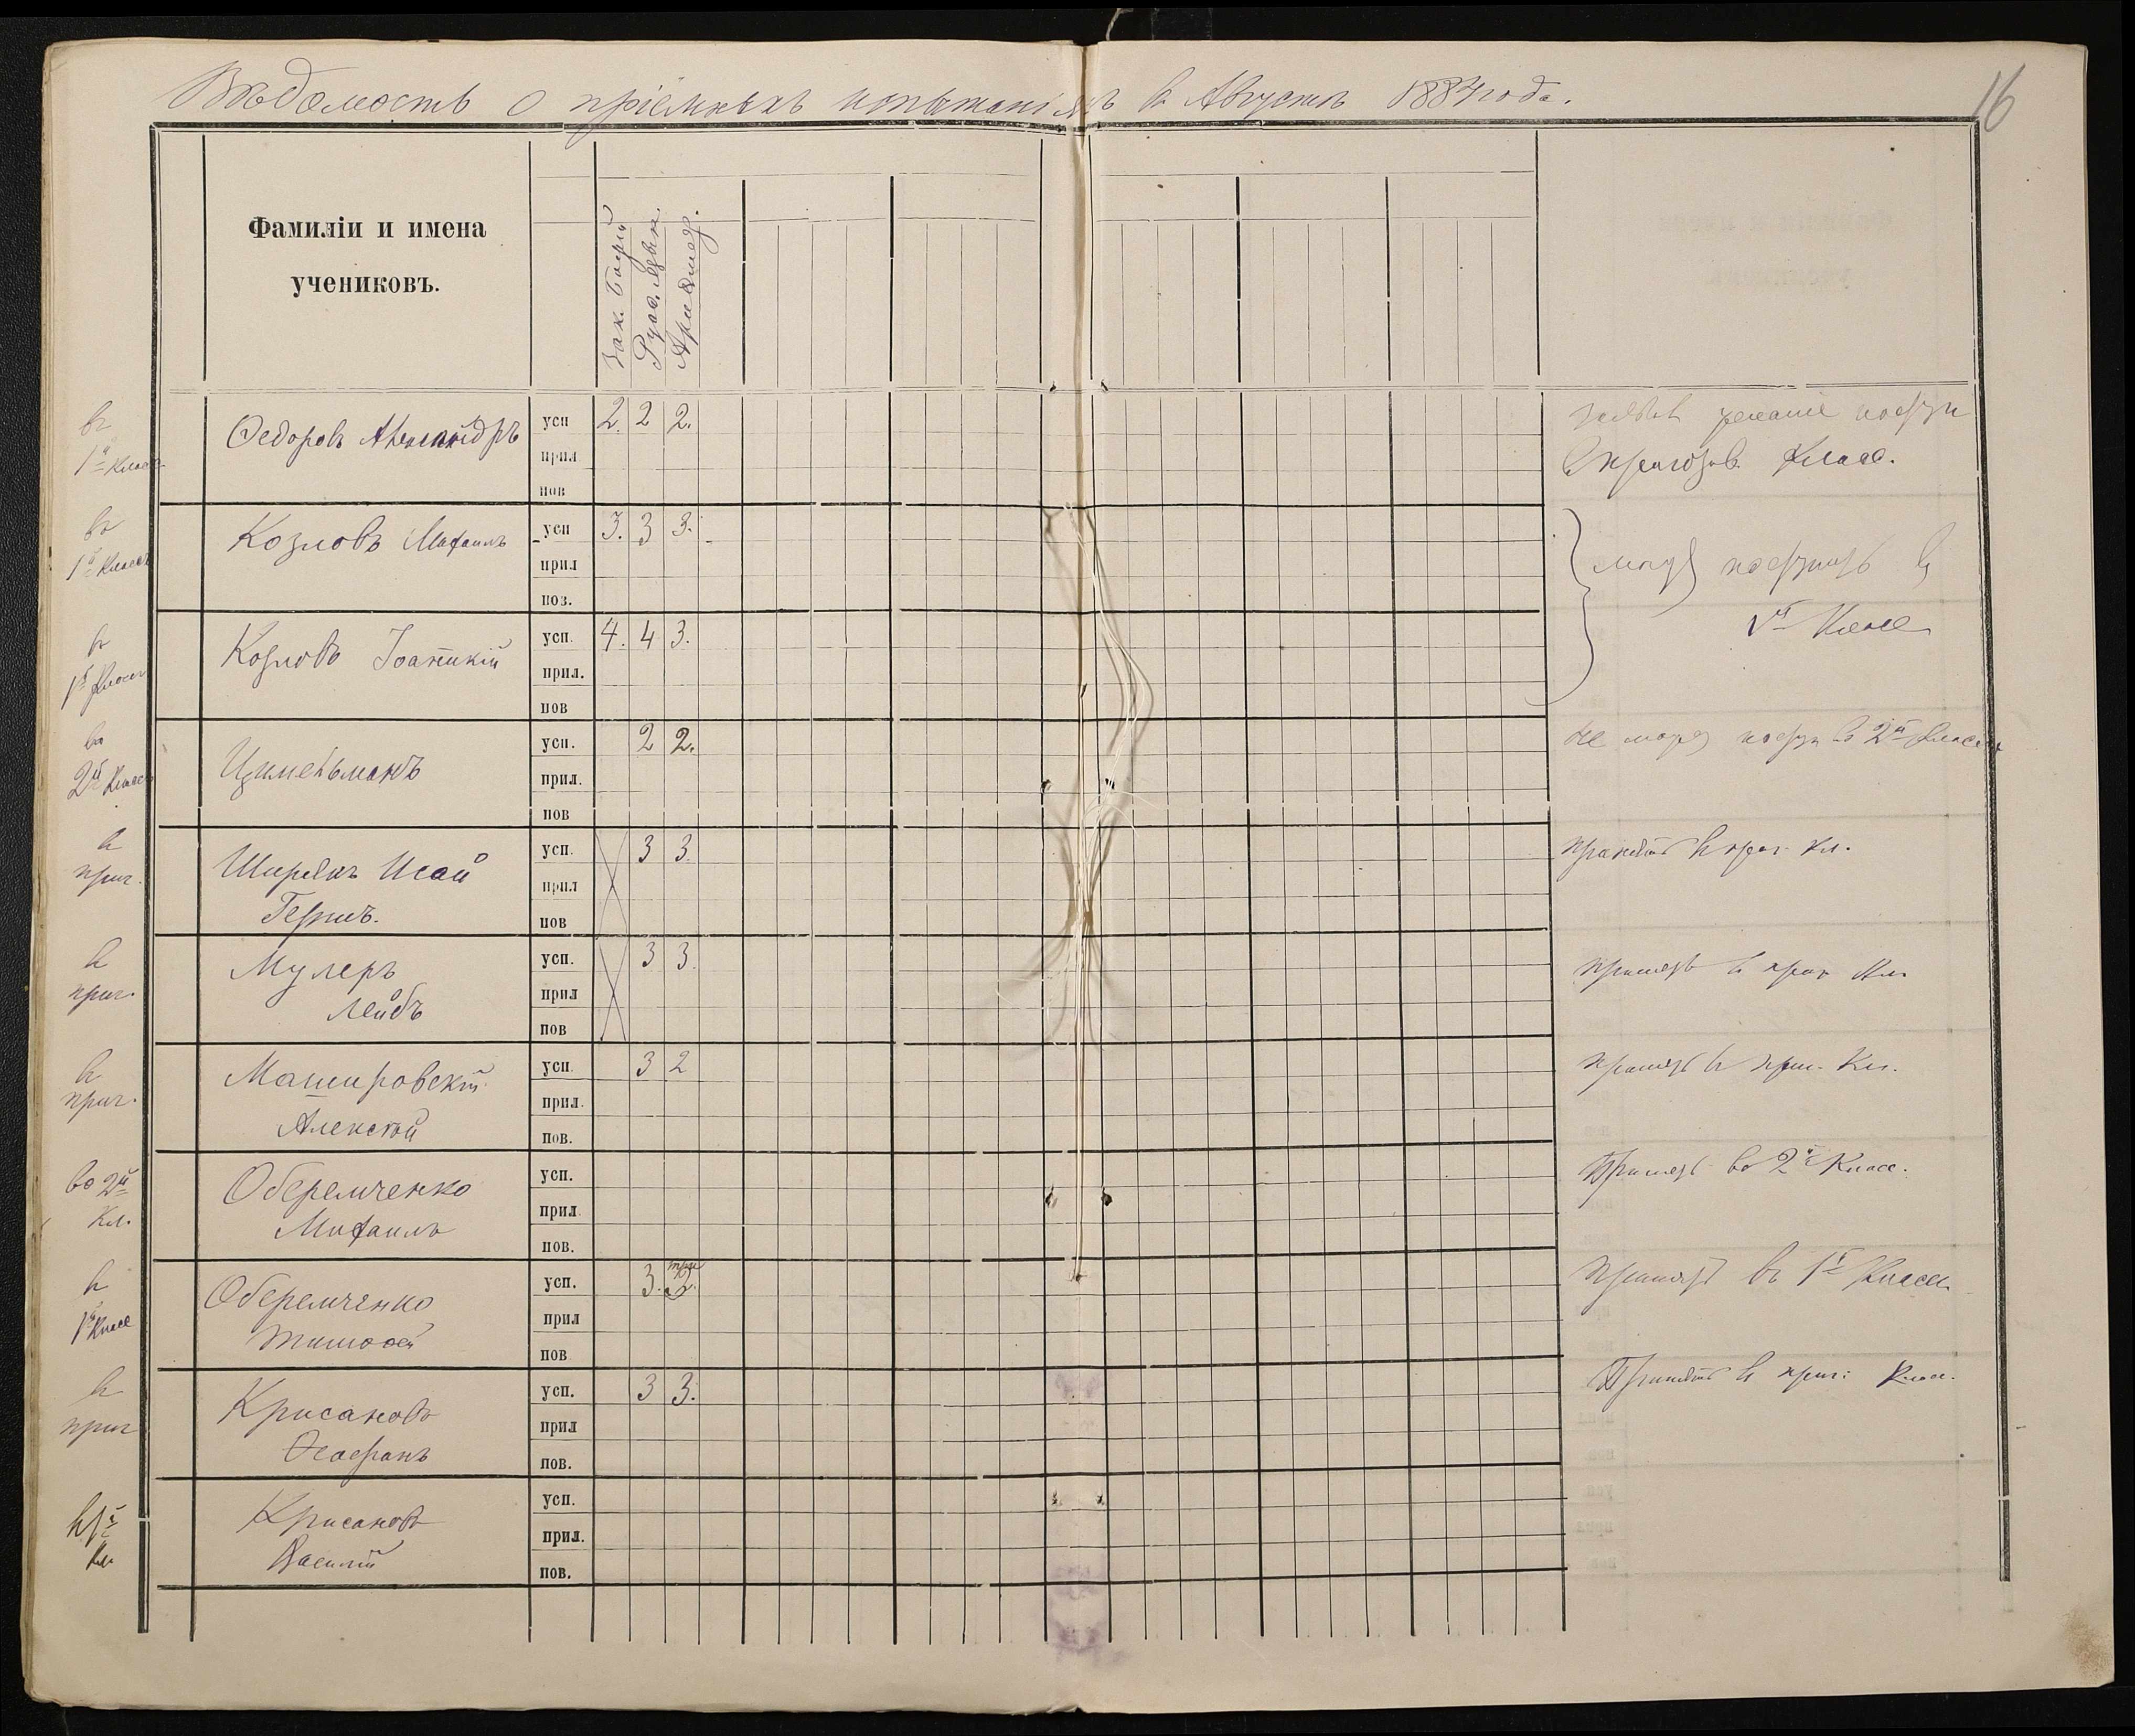 Вѣдомость о пріемныхъ испытаніяхъ въ Августѣ 1884 года.
16
Фамиліи и имена
учениковъ.
Зак. Божій
Русс. язык.
Ариѳмет.
въ
1й классъ
Ѳедоровъ Александръ
усп 2. 2 2.
прил
пов
желаніе
въ приготов. Класс.
въ
1й Классъ
Козловъ Михаилъ
усп 3. 3 3.
прил
поз.
могутъ поступить въ
1й Классъ
въ
1й Классъ
Козловъ Іоанникій
усп. 4. 4 3.
прил.
пов
во
2й Классъ
Цимельманъ
усп. 2 2.
прил.
пов
не можетъ поступ во 2й Классъ
въ
приг.
Исай
усп. 3 3.
прил
пов
принятъ въ приг. кл.
въ
приг.
Мулеръ
Лейбъ
усп. 3 3.
прил
пов
принятъ въ приг Кл.
въ
приг.
Машировскій
Алексѣй
усп. 3 2
прил.
пов.
принятъ въ приг. Кл.
во 2й
Кл.
Оберемченко
Михаилъ
усп.
прил
пов.
Принятъ во 2й Класс.
въ
1й Класс
Оберемченко
Тимоѳей
усп. 3. 2. три
прил
пов
принятъ въ 1й Классъ
въ
приг
Крисановъ
усп. 3 3.
прил
пов.
Принятъ въ приг: Класс.
въ 1й
Кл.
Крисановъ
Василій
усп.
прил.
пов.